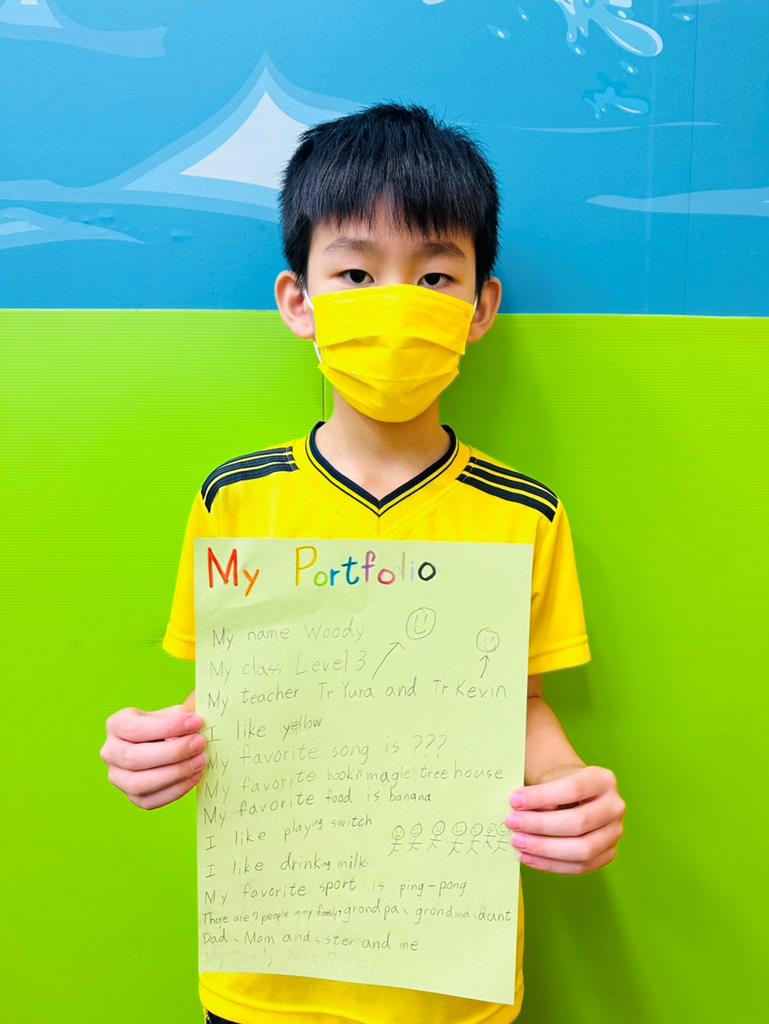 My Portfolio
My name Woody
My class Level 3
My teacher Tr Yura and Tr Kevin
I like yellow
My favorite song is ???
My favorite book is magic tree house
My favorite food is banana
I like playing switch
I like drinking milk
My favorite sport is ping-pong
There are 7 people in my family, grondpa、grondma、aunt
Dad、Mom and sister and me
My family have 7 people